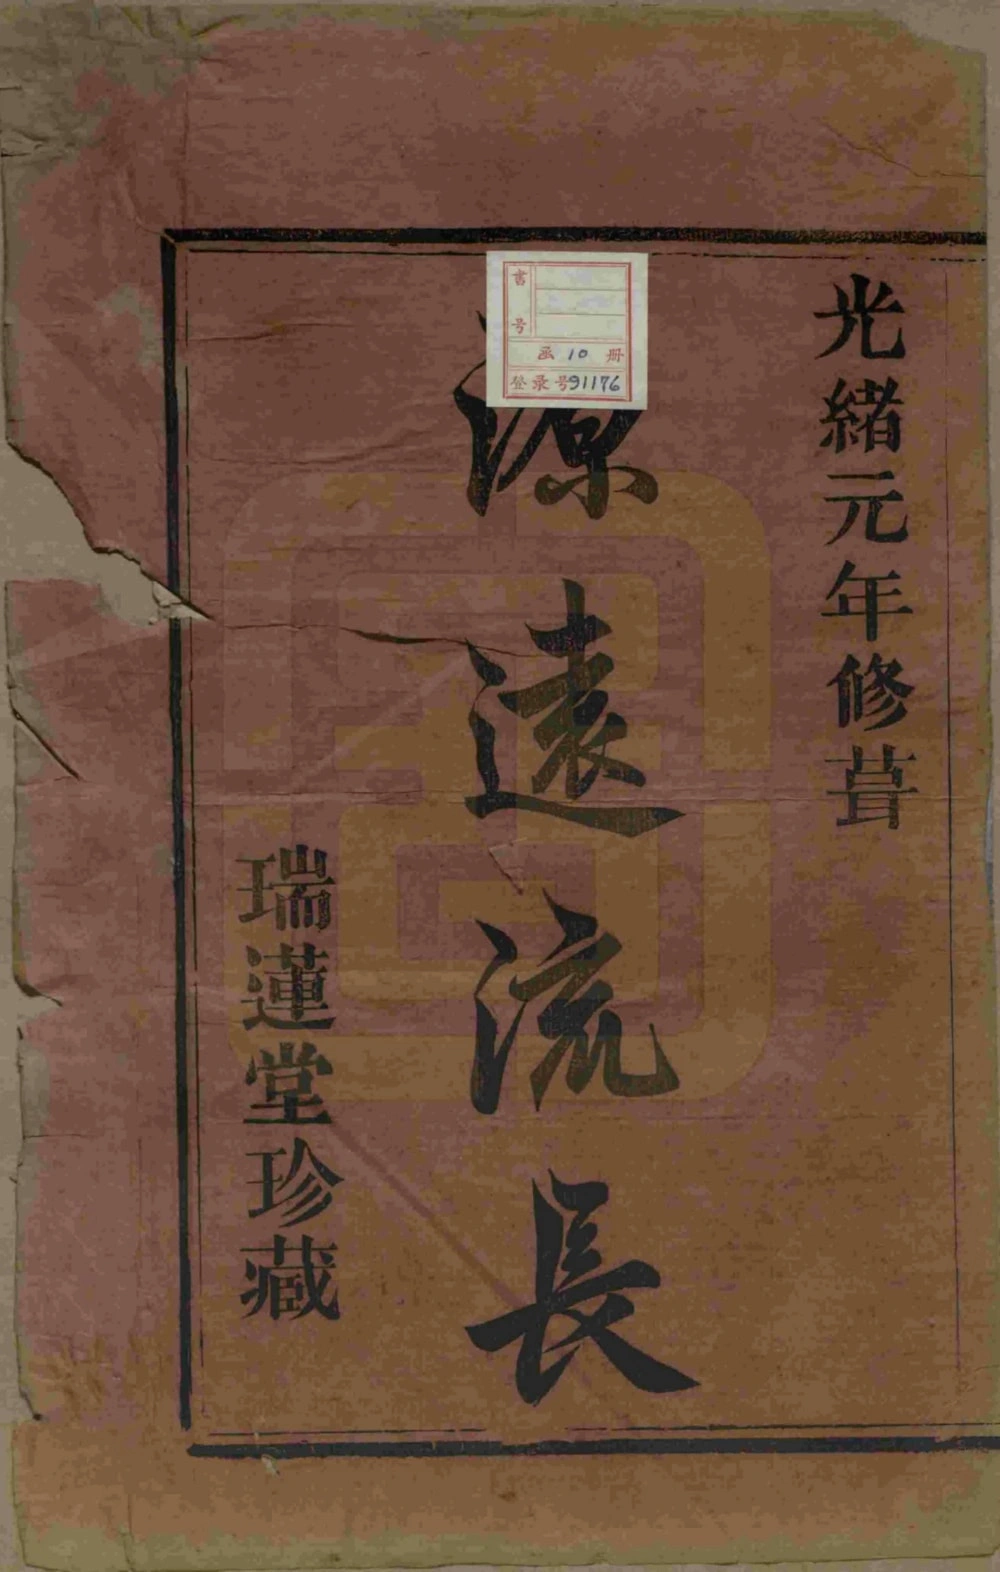 光緒元年修葺
源遠流長
瑞蓮堂珍藏
書号
函 10 册
登录号 91176